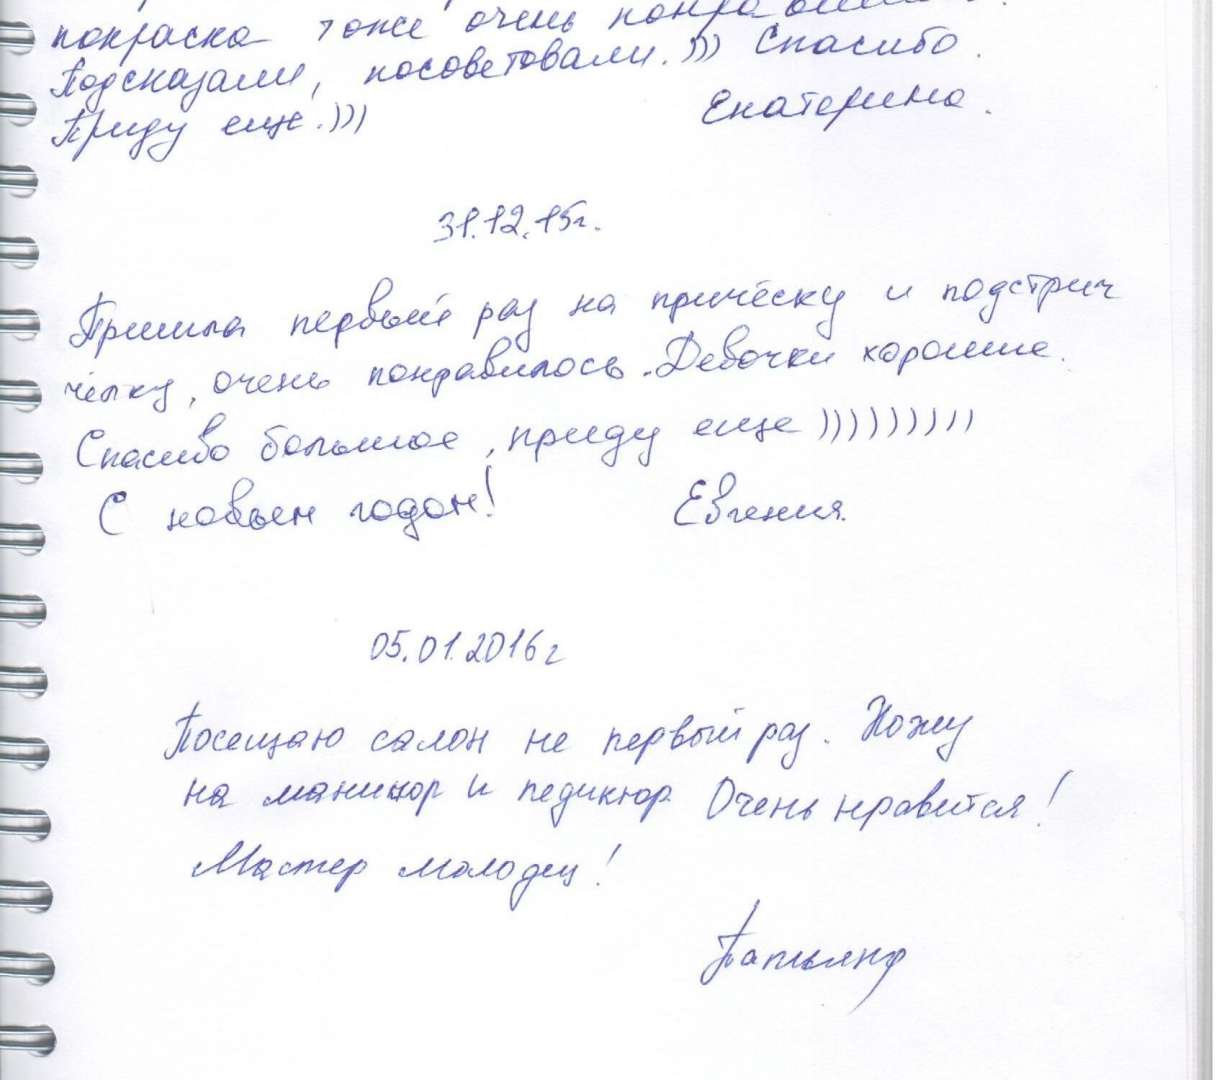 покраска тоже очень понравилась.
Подсказали, посоветовали.))) Спасибо.
Приду еще.)))
Екатерина.
31.12.15г.
Пришла первый раз на прическу и подстрич
чёлку, очень понравилось. Девочки хорошие.
Спасибо большое, приду еще )))))))))
С новым годом!
Евгения.
05.01.2016г
Посещаю салон не первый раз. Хожу
на маникюр и педикюр. Очень нравится!
Мастер молодец!
Татьяна